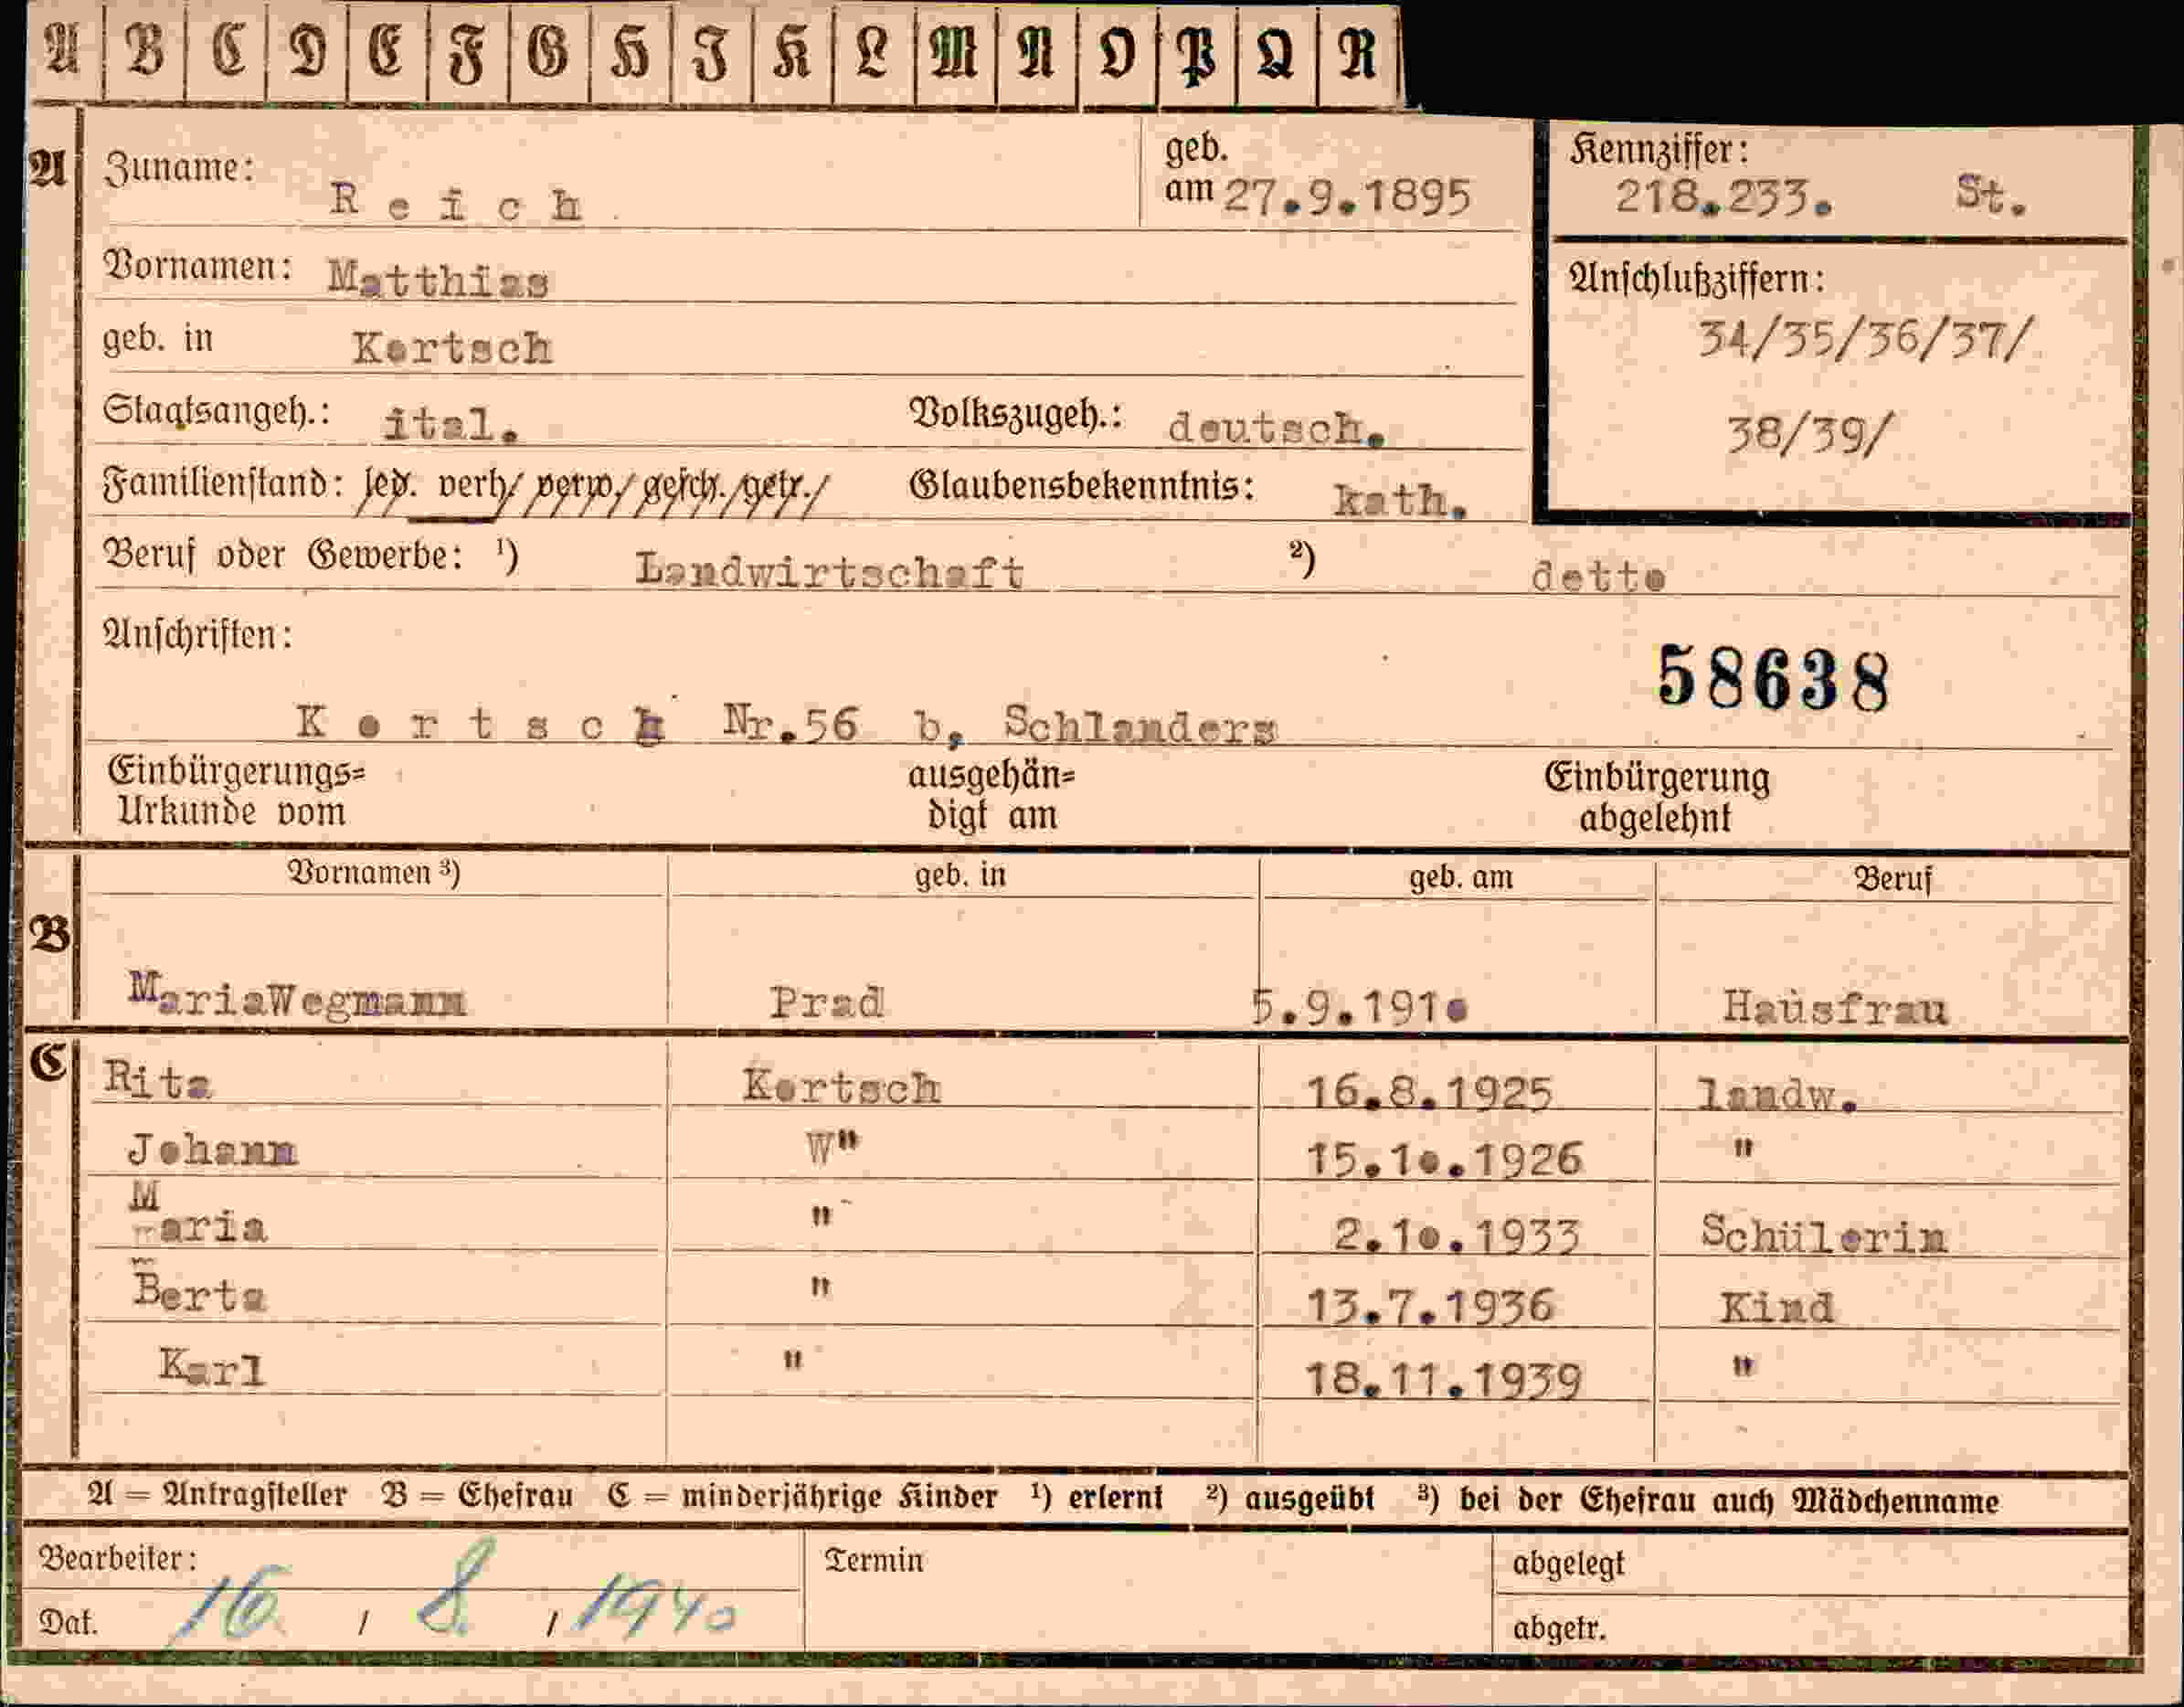 A B C D E F G H I K L M N O P Q R
A
Zuname: Reich
geb. am 27.9.1895
Kennziffer:
218.233. St.
Vornamen: Matthias
Anschlußziffern:
34/35/36/37/
38/39/
geb. in Kortsch
Staatsangeh.: ital. Volkszugeh.: deutsch.
Familienstand: led. verh/ verw/ gesch./getr./ Glaubensbekenntnis: kath.
Beruf oder Gewerbe: 1) Landwirtschaft 2) detto
Anschriften:
58638
Kortsch Nr.56 b. Schlanders
Einbürgerungs=
Urkunde vom
ausgehän=
digt am
Einbürgerung
abgelehnt
Vornamen 3) geb. in geb. am Beruf
B
MariaWegmann Prad 5.9.1910 Hausfrau
C
Rita Kortsch 16.8.1925 landw.
Johann W" 15.10.1926 "
Maria " 2.10.1933 Schülerin
Berta " 13.7.1936 Kind
Karl " 18.11.1939 "
A = Antragsteller B = Ehefrau C = minderjährige Kinder 1) erlernt 2) ausgeübt 3) bei der Ehefrau auch Mädchenname
Bearbeiter:
Termin
abgelegt
Dat. 16 / 8 / 1940
abgetr.